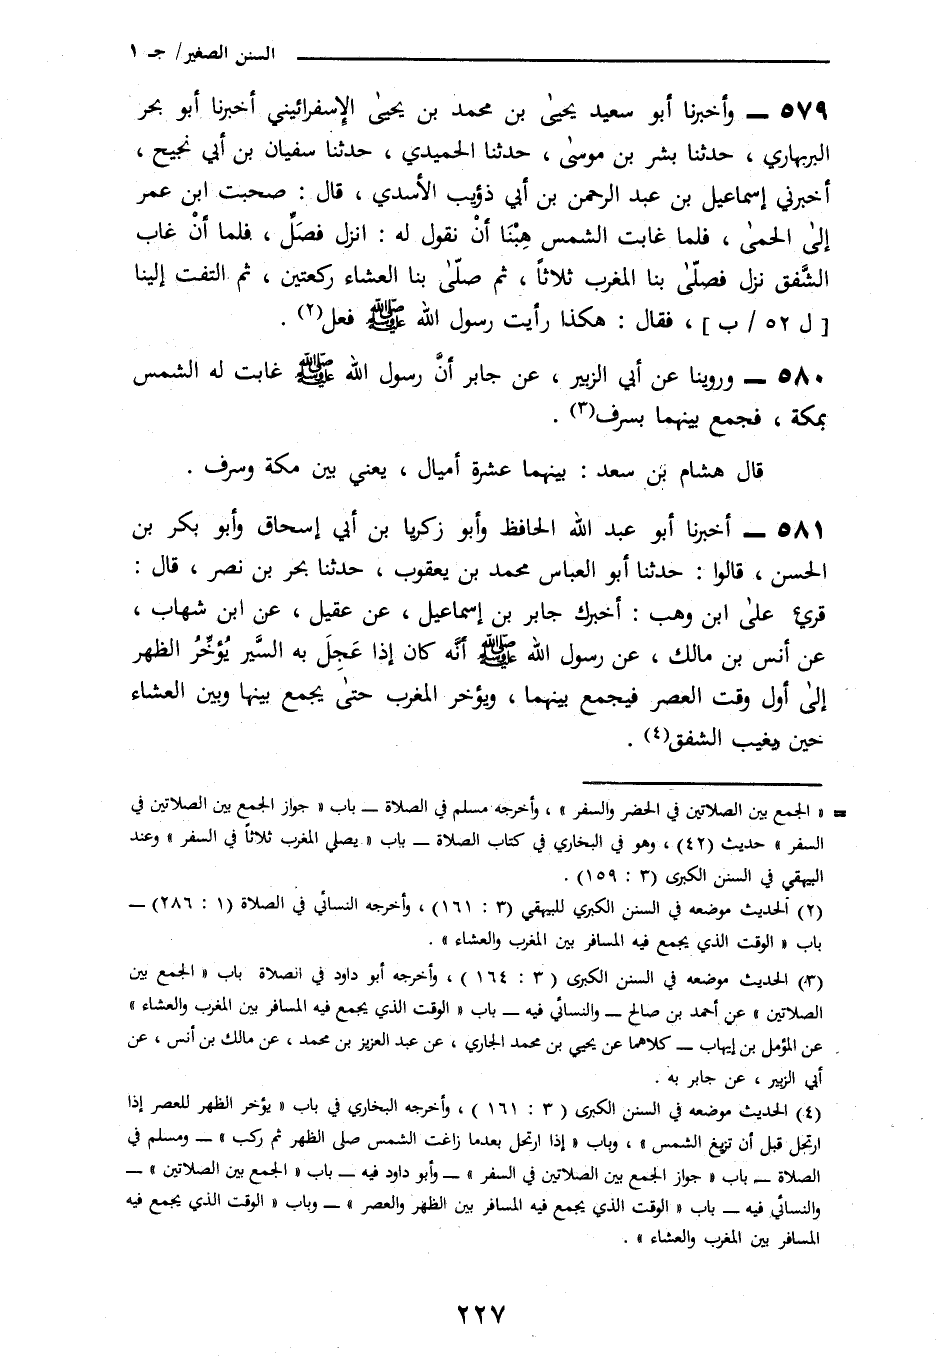 السنن الصغير/ جـ ١
٥٧٩ ــ وأخبرنا أبو سعيد يحيىٰ بن محمد بن يحيىٰ الإسفرائيني أخبرنا أبو بحر
البربهاري ، حدثنا بشر بن موسىٰ ، حدثنا الحميدي ، حدثنا سفيان بن أبي نجيح ،
أخبرني إسماعيل بن عبد الرحمن بن أبي ذؤيب الأسدي ، قال : صحبت ابن عمر
إلىٰ الحمىٰ ، فلما غابت الشمس هِبْنَا أنْ نقول له : انزل فصَلِّ ، فلما أنْ غاب
الشَّفق نزل فصلّىٰ بنا المغرب ثلاثاً ، ثم صلّىٰ بنا العشاء ركعتين ، ثم التفت إلينا
[ ل ٥٢ / ب ] ، فقال : هكذا رأيت رسول الله ﷺ فعل(٢) .
٥٨٠ ــ وروينا عن أبي الزبير ، عن جابر أنَّ رسول الله ﷺ غابت له الشمس
بمكة ، فجمع بينهما بسرف(٣) .
قال هشام بن سعد : بينهما عشرة أميال ، يعني بين مكة وسرف .
٥٨١ ــ أخبرنا أبو عبد الله الحافظ وأبو زكريا بن أبي إسحاق وأبو بكر بن
الحسن ، قالوا : حدثنا أبو العباس محمد بن يعقوب ، حدثنا بحر بن نصر ، قال :
قرئ علىٰ ابن وهب : أخبرك جابر بن إسماعيل ، عن عقيل ، عن ابن شهاب ،
عن أنس بن مالك ، عن رسول الله ﷺ أنَّه كان إذا عَجِلَ به السَّير يُؤخِّرُ الظهر
إلىٰ أول وقت العصر فيجمع بينهما ، ويؤخر المغرب حتىٰ يجمع بينها وبين العشاء
حين يغيب الشفق(٤) .
= « الجمع بين الصلاتين في الحضر والسفر » ، وأخرجه مسلم في الصلاة ــ باب « جواز الجمع بين الصلاتين في
السفر » حديث (٤٢) ، وهو في البخاري في كتاب الصلاة ــ باب « يصلي المغرب ثلاثاً في السفر » وعند
البيهقي في السنن الكبرى (٣ : ١٥٩) .
(٢) الحديث موضعه في السنن الكبرى للبيهقي (٣ : ١٦١) ، وأخرجه النسائي في الصلاة (١ : ٢٨٦) ــ
باب « الوقت الذي يجمع فيه المسافر بين المغرب والعشاء » .
(٣) الحديث موضعه في السنن الكبرى ( ٣ : ١٦٤ ) ، وأخرجه أبو داود في الصلاة باب « الجمع بين
الصلاتين » عن أحمد بن صالح ــ والنسائي فيه ــ باب « الوقت الذي يجمع فيه المسافر بين المغرب والعشاء »
عن المؤمل بن إيهاب ــ كلاهما عن يحيى بن محمد الجاري ، عن عبد العزيز بن محمد ، عن مالك بن أنس ، عن
أبي الزبير ، عن جابر به .
(٤) الحديث موضعه في السنن الكبرى ( ٣ : ١٦١ ) ، وأخرجه البخاري في باب « يؤخر الظهر للعصر إذا
ارتجل قبل أن تزيغ الشمس » ، وباب « إذا ارتحل بعدما زاغت الشمس صلى الظهر ثم ركب » ــ ومسلم في
الصلاة ــ باب « جواز الجمع بين الصلاتين في السفر » ــ وأبو داود فيه ــ باب « الجمع بين الصلاتين » ــ
والنسائي فيه ــ باب « الوقت الذي يجمع فيه المسافر بين الظهر والعصر » ــ وباب « الوقت الذي يجمع فيه
المسافر بين المغرب والعشاء » .
٢٢٧